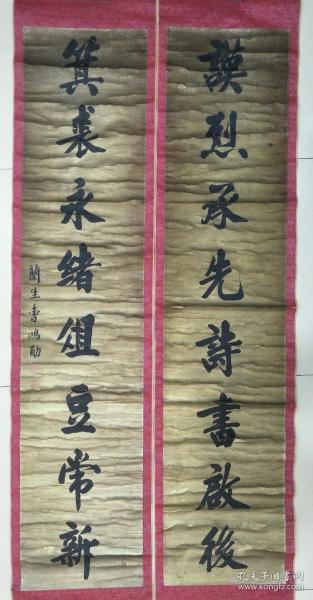 謨烈承先詩書啟後
箕裘永緒俎豆常新
蘭生曹鴻勛
孔夫子旧书网
www.kongfz.com